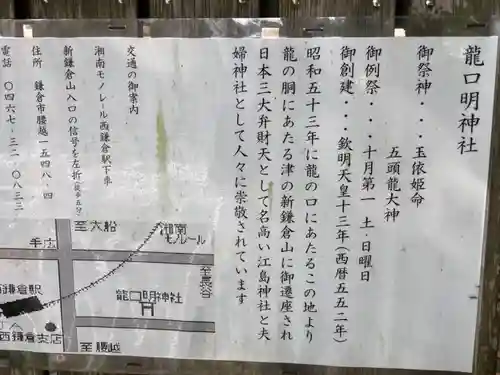 龍口明神社
御祭神・・・玉依姫命
五頭龍大神
御例祭・・・十月第一 土・日曜日
御創建・・・欽明天皇十三年(西暦五五二年)
昭和五十三年に龍の口にあたるこの地より
龍の胴にあたる津の新鎌倉山に御遷座され
日本三大弁財天として名高い江島神社と夫
婦神社として人々に崇敬されています
交通の御案内
湘南モノレール西鎌倉駅下車
新鎌倉山入口の信号を左折(徒歩五分)
住所 鎌倉市腰越一五四八・四
電話 〇四六七・三二・〇八三三
至大船
湘南
モノレール
手広
至長谷
西鎌倉駅
龍口明神社
西鎌倉支店
至腰越